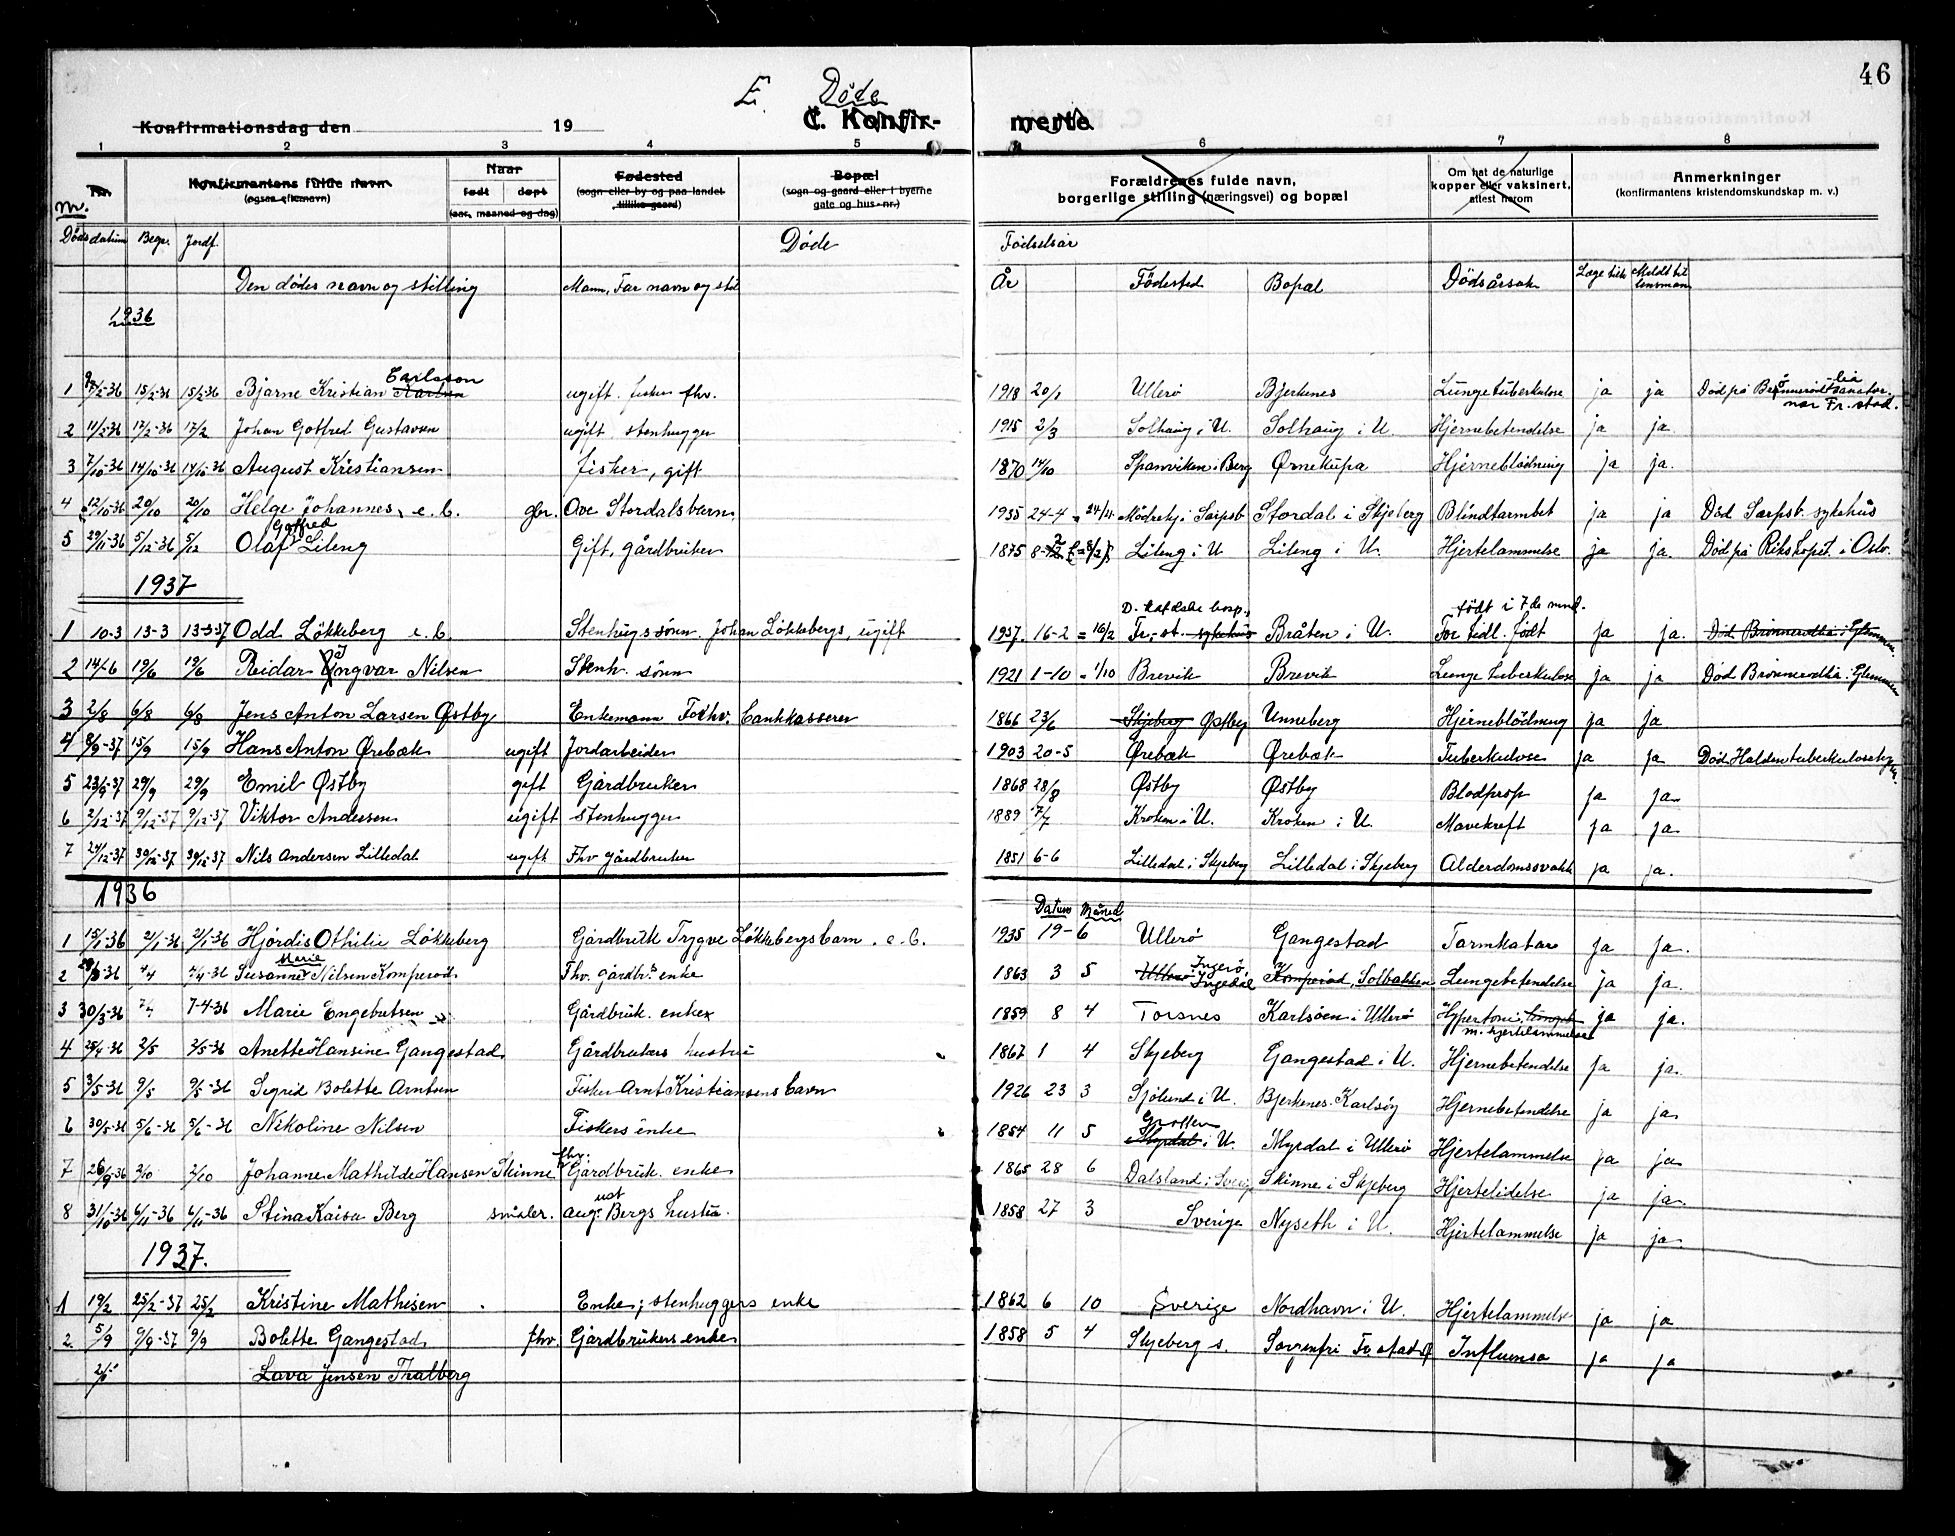 46
E. Døde
Konfirmationsdag den 19 C. Konfir- merte
1 2 3 4 5 6 7 8
Nr. Konfirmantens fulde navn Naar Fødested Bopæl Forældrenes fulde navn, Om hat de naturlige Anmerkninger
m. (ogsaa efternavn) født døpt (sogn eller by og paa landet (sogn og gaard eller i byerne borgerlige stilling (næringsvei) og bopæl kopper eller vaksinert, (konfirmantens kristendomskundskap m. v.)
(aar, maaned og dag) tillike gaard) gate og hus-nr.) attest herom
Dødsdatum Begr. Jordf. Døde Fødselsår
Den dødes navn og stilling Mann, Far navn og stil År Födested Bopal Dödsårsak Læge tilk Meldt til lensman
1936
1 9/2-36 15/2-36 15/2-36 Bjarne Kristian Karlsen Carlsson ugift. fisker fhv. 1918 20/1 Ullerö Bjerkenes Lungetuberkulose ja ja Död på Brönnerödlia sanator. nær Fr. stad.
2 11/2-36 17/2-36 17/2 Johan Gotfred Gustavsen ugift stenhugger 1915 2/3 Solhaug i U. Solhaug i U. Hjernebetendelse ja ja.
3 7/10-36 14/10-36 14/10-36 August Kristiansen fisker, gift 1870 14/10 Spanviken i Berg Ørnekupa Hjerneblödning ja ja.
4 12/10-36 20/10 20/10 Helge Johannes, e. b. gbr. Ove Stordalsbarn. 1935 24-4 = 24/4. Mödrehj. i Sarpsb. Stordal i Skjeberg Blindtarmbet ja ja Död Sarpsb. sykehus
5 29/11-36 5/12-36 5/12 Olaf Gotfred Lileng Gift, gårdbruker 1875 8-2 (=8/2) Lileng i U Lileng i U. Hjertelammelse ja ja. Död på Rikshospit. i Oslo.
1937
1 10-3 13-3 13-3-37 Odd Løkkeberg e. b. Stenhugssönn. Johan Løkkebergs, ugift 1937. 16-2 = 16/2 D. Katolske hosp., Fr.-st. sykehus Bråten i U. født i 7de mnd. For tidl. født ja ja. Död Brönnerödlia i Glemmen.
2 14-6 19/6 19/6 Reidar Yngvar Nilsen Stenh. sönn 1921 1-10 = 1/10 Brevik Brevik Lunge tuberkulose ja ja Död Brönnerödlia. Glemmen
3 2/8 6/8 6/8 Jens Anton Larsen Østby Enkemann Forhv. bankkasserer 1866 23/6 Skjeberg Østby Unneberg Hjerneblödning ja ja
4 8/9-37 15/9 15/9 Hans Anton Ørebæk ugift Jordarbeider 1903 20-5 Ørebæk Ørebæk Tuberkulose ja ja Död Halden tuberkulosehj.
5 23/9-37 29/9 29/9 Emil Østby gift Gårdbruker 1868 28/8 Østby Østby Blodprop ja ja
6 2/12-37 9/12-37 9/12-37 Viktor Andersen ugift stenhugger 1889 7/7 Kroken i U. Kroken i U. Mavekreft ja ja
7 24/12-37 30/12-37 30/12-37 Nils Andersen Lilledal ugift Fhv gårdbruker 1851 6-6 Lilledal i Skjeberg Lilledal i Skjeberg Alderdomssvakh ja ja.
1936 Datum Måned
1 15/1-36 21/1-36 21/1-36 Hjördis Othilie Løkkeberg Gårdbruk Trygve Løkkebergs barn. e. b. 1935 19-6 Ullerö Gangestad Tarmkatar ja ja.
2 29/3-36 4/4 7/4-36 Susanne Marie Nilsen Komperöd. Fhv. gårdbr. enke 1863 3 5 Ullerö Ingerö, Ingedal Komperöd, Solbakken Lungebetendelse ja ja
3 30/3-36 7/4 7-4-36 Marie Engebretsen Gårdbruk. enke 1859 8 4 Torsnes Karlsöen i Ullerö Hypertoni m. hjertelammelse ja ja.
4 25/4-36 2/5 2/5-36 Anette Hansine Gangestad, Gårdbrukers hustru 1867 1 4 Skjeberg Gangestad i U. Hjernebetendelse ja ja.
5 3/5-36 9/5 9/5-36 Sigrid Bolette Arntsen Fisker Arnt Kristiansens barn 1926 23 3 Sjölund i U. Bjerkenes. Karlsöy Hjernebetendelse ja ja
6 30/5-36 5/6-36 5/6-36 Nikoline Nilsen Fiskers enke 1854 11 5 Myrdal Grotten i U. Myrdal i Ullerö Hjertelammelse ja ja
7 26/9-36 2/10 2/10 Johanne Mathilde Hansen Skinne fhv. Gårdbruk. enke 1865 28 6 Dalsland i Sverige Skinne i Skjeberg Hjertelidelse ja ja.
8 31/10-36 6/11-36 6/11-36 Stina Kaisa Berg småler. aug. Bergs hustru. 1858 27 3 Sverige Nyseth i U. Hjertelammelse ja ja.
1937.
1 19/2 25/2-37 25/2 Kristine Mathisen Enke; stenhuggers enke 1862 6 10 Sverige Nordhavn i U. Hjertelammelse ja ja
2. 5/9 9/9-37 9/9 Bolette Gangestad fhv. Gårdbrukers enke 1858 5 4 Skjeberg s. Sorgenfri Fr. stad Influensa ja ja
Lava Jensen Thalberg